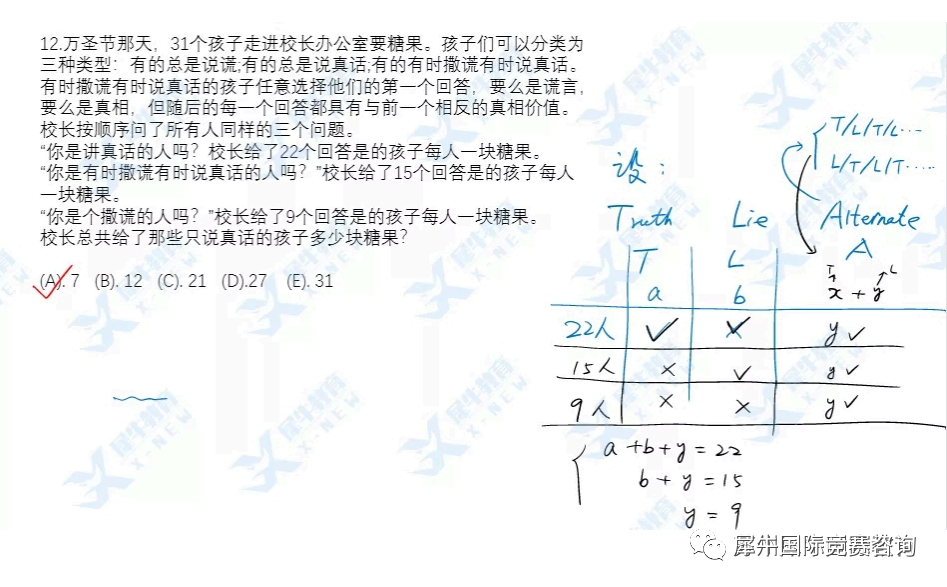 12.万圣节那天，31个孩子走进校长办公室要糖果。孩子们可以分类为
三种类型：有的总是说谎;有的总是说真话;有的有时撒谎有时说真话。
有时撒谎有时说真话的孩子任意选择他们的第一个回答，要么是谎言，
要么是真相，但随后的每一个回答都具有与前一个相反的真相价值。
校长按顺序问了所有人同样的三个问题。
“你是讲真话的人吗？校长给了22个回答是的孩子每人一块糖果。
“你是有时撒谎有时说真话的人吗？”校长给了15个回答是的孩子每人
一块糖果。
“你是个撒谎的人吗？”校长给了9个回答是的孩子每人一块糖果。
校长总共给了那些只说真话的孩子多少块糖果？
(A). 7 (B). 12 (C). 21 (D).27 (E). 31
T/L/T/L...
L/T/L/T.....
设：
Truth Lie Alternate
T L A
T L
a b x + y
22人 ✓ ✓ y ✓
15人 × ✓ y ✓
9人 × × y ✓
a + b + y = 22
b + y = 15
y = 9
犀牛教育
X-NEW
犀牛国际竞赛咨询